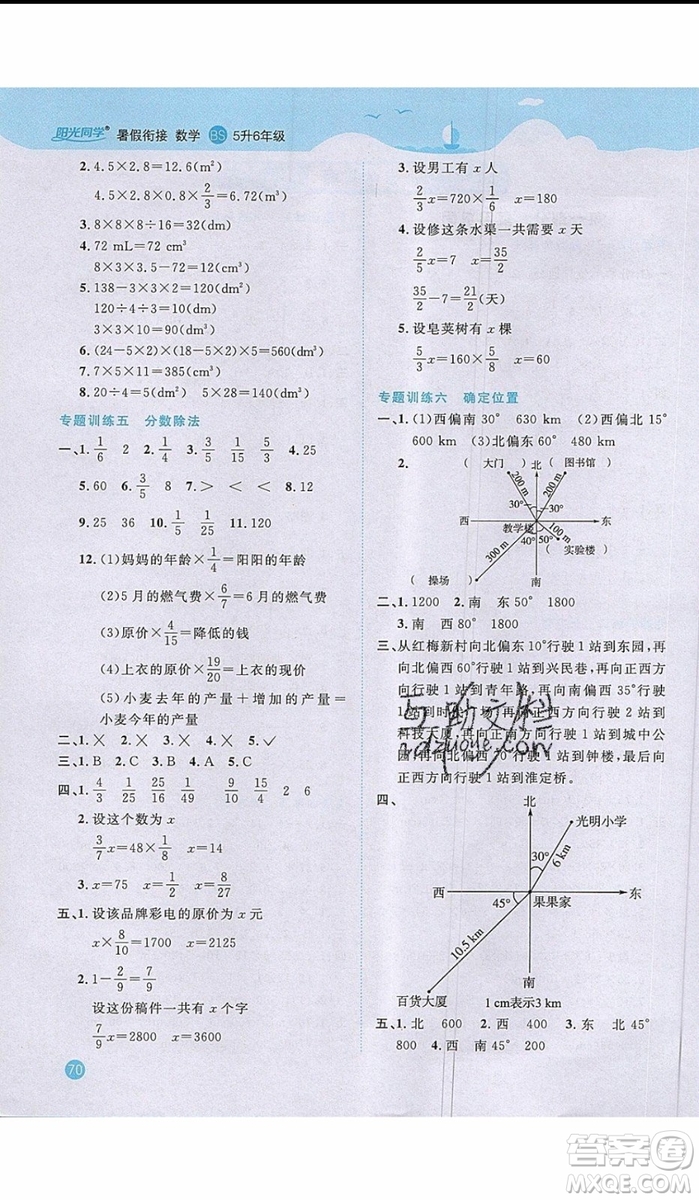 阳光同学® 暑假衔接 数学 BS 5升6年级
2. 4.5×2.8=12.6(m²)
4.5×2.8×0.8×2/3=6.72(m³)
3. 8×8×8÷16=32(dm)
4. 72 mL=72 cm³
8×3×3.5-72=12(cm³)
5. 138-3×2×3=120(dm)
120÷4÷3=10(dm)
3×3×10=90(dm²)
6. (24-5×2)×(18-5×2)×5=560(cm³)
7. 7×5×11=385(cm³)
8. 20÷4=5(dm) 5×5×20=500(dm³)
专题训练五 分数除法
一、1. 1/6 2 2. 1/4 3. 3/5 1/15 5/3 4. 25
5. 60 6. 3/5 8 7. > < < 8. 12
9. 25 36 10. 1/5 11. 200
12. (1)妈妈的年龄×1/4=阳阳的年龄
(2)5月的燃气费×6/7=6月的燃气费
(3)原价×4/15=降低的钱
(4)上衣的原价×19/20=上衣的现价
(5)小麦去年的产量+增加的产量=
小麦今年的产量
二、1. ✕ 2. ✕ 3. ✕ 4. ✕ 5. ✓
三、1. B 2. C 3. B 4. A 5. C
四、1. 4/3 1/15 25/6 15/4 2/9 24/7 2 6
2. 设这个数为x
3/7x=48×1/8 x=14
3. x=75 x=1/2 x=8/9
五、1. 设该品牌彩电的原价为x元
x×8/10=1700 x=2125
2. 1-2/9=7/9
设这份稿件一共有x个字
7/9x=2800 x=3600
70
3. 设男工有x人
2/3x=720×1/6 x=180
4. 设修这条水渠一共需要x天
2/5x=7 x=35/2
35/2-7=21/2(天)
5. 设皂荚树有x棵
5/3x=160×5/8 x=60
专题训练六 确定位置
一、1. (1)西偏南30° 630 km (2)西偏北15°
600 km (3)北偏东60° 480 km
2. (大门) 北 (图书馆)
200 m 200 m
30° 30°
西 东
教学楼 100 m
300 m 40° 50° (实验楼)
(操场) 南
二、1. 1200 2. 南 东 50° 1800
3. 南 西 80° 1800
三、从红梅新村向北偏东10°行驶1站到东园，再
向北偏西60°行驶1站到兴民巷，再向正西方
向行驶1站到青年路，再向西偏南35°方向行驶
1站到时 正西方向行驶1站到
科技大厦，再向正南方向行驶1站到城中公
园，再向北偏西 行驶1站到钟楼，最后向
正西方向行驶1站到淮定桥。
四、
北
光明小学
30° 6 km
西 东
45° 果果家
10.5 km
南
百货大厦 1 cm表示3 km
五、1. 北 600 2. 北 东 30 600 3. 东 南 20
800 4. 西 南 45 200
互助文档
答案圈
MXQE.COM